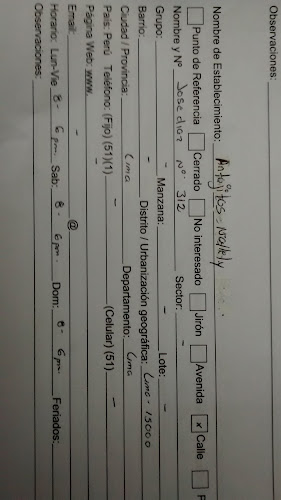 Observaciones:
Nombre de Establecimiento: Antojitos - Nallely
Punto de Referencia Cerrado No interesado Jirón Avenida x Calle P
Nombre y Nº Jose diaz Nº 312 Sector: -
Grupo: - Manzana: - Lote: -
Barrio: - Distrito / Urbanización geográfica: Lima - 15000
Ciudad / Provincia: Lima Departamento: Lima
País: Perú Teléfono: (Fijo) (51)(1) - (Celular) (51) -
Página Web: www. -
Email: - @
Horario: Lun-Vie 8 - 6 pm Sab: 8 - 6 pm. Dom: 8 - 6 pm Feriados:
Observaciones: